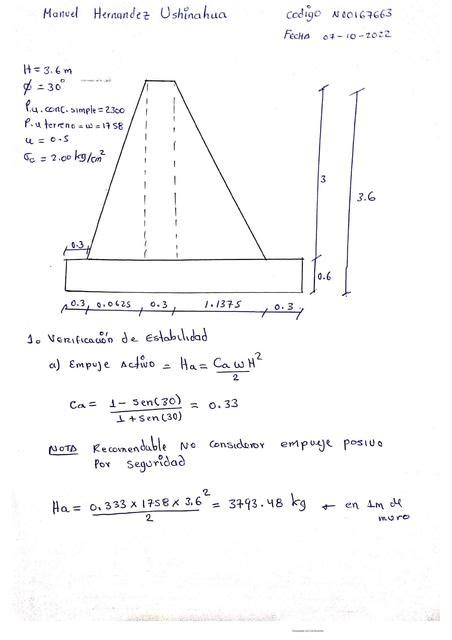 Manuel Hernandez Ushinahua
codigo N00167663
Fecha 07-10-2022
H = 3.6 m
φ = 30°
P.u. conc. simple = 2300
P.u terreno = w = 1758
u = 0.5
σc = 2.00 kg/cm²
0.3
3
3.6
0.6
0.3 0.0625 0.3 1.1375 0.3
1. Verificación de Estabilidad
a) Empuje Activo = Ha = Ca w H² / 2
Ca = 1 - Sen(30) / 1 + Sen(30) = 0.33
NOTA Recomendable No considerar empuje pasivo
Por seguridad
Ha = 0.333 x 1758 x 3.6² / 2 = 3793.48 kg ← en 1m de
muro